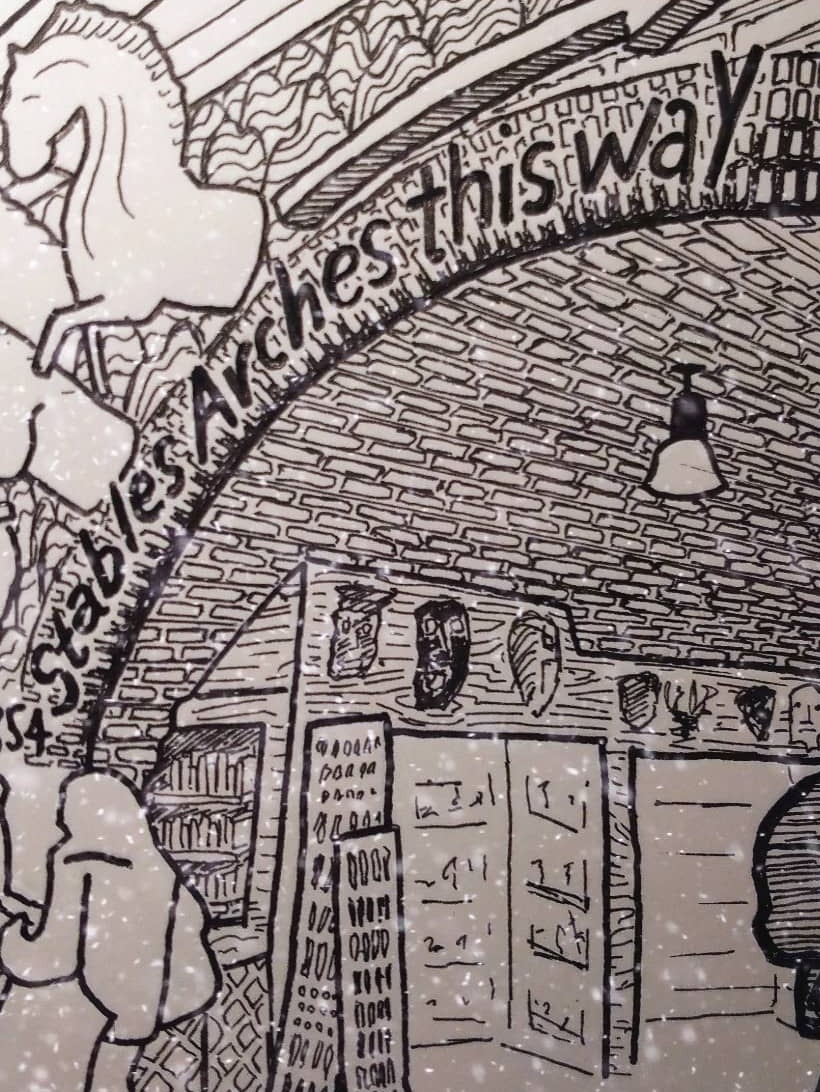 Stables Arches this way